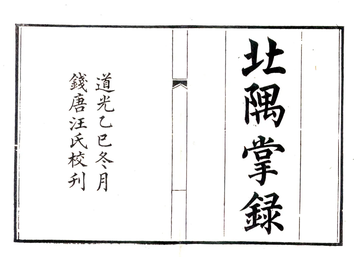 北隅掌録
道光乙巳冬月
錢唐汪氏校刊